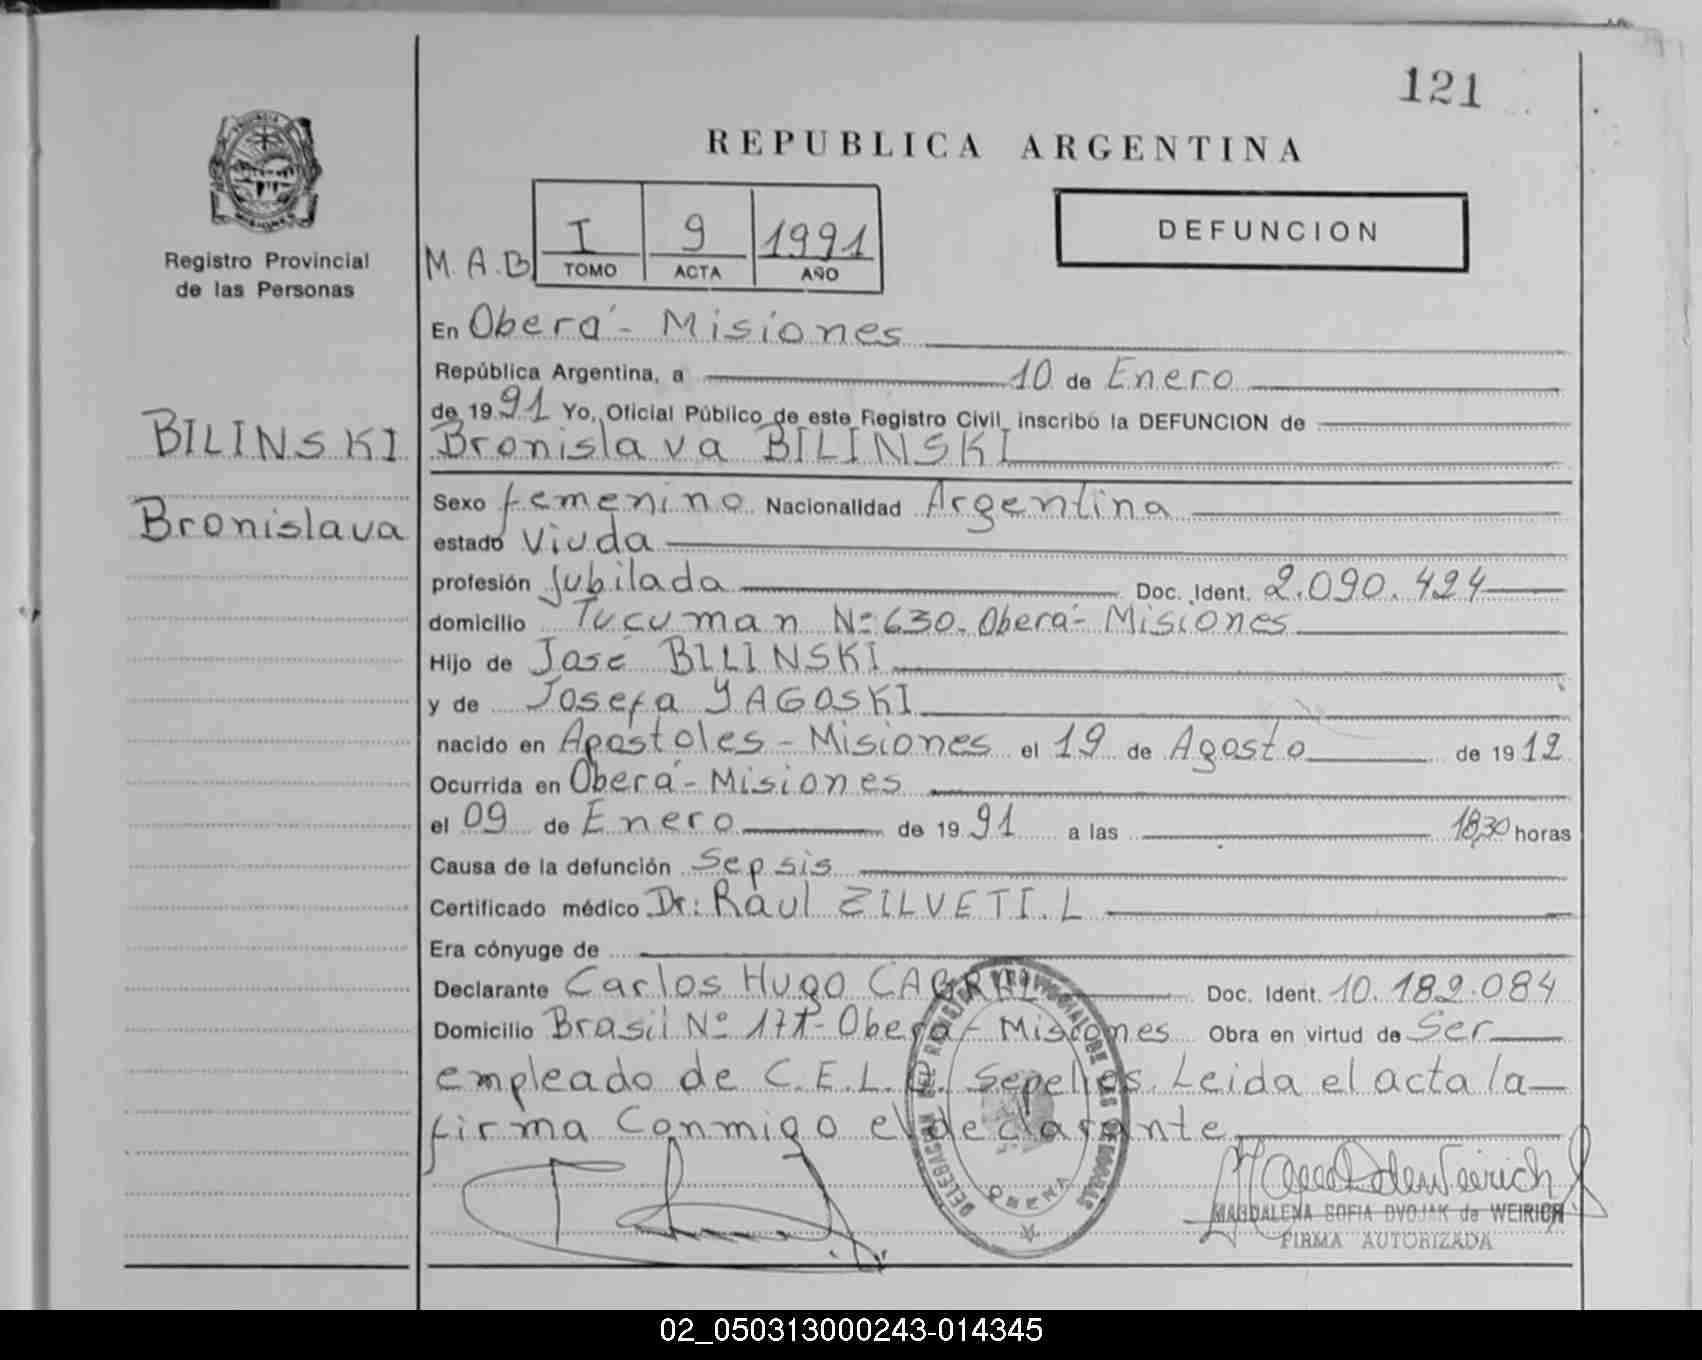 121
REPUBLICA ARGENTINA
PROVINCIA DE MISIONES
Registro Provincial
de las Personas
BILINSKI
Bronislava
M.A.B.
I 9 1991
TOMO ACTA AÑO
DEFUNCION
En Oberá - Misiones
República Argentina, a 10 de Enero
de 1991 Yo, Oficial Público de este Registro Civil inscribo la DEFUNCION de
Bronislava BILINSKI
Sexo femenino Nacionalidad Argentina
estado Viuda
profesión Jubilada Doc. Ident. 2.090.424
domicilio Tucuman Nº 630. Oberá - Misiones
Hijo de José BILINSKI
y de Josefa YAGOSKI
nacido en Apostoles - Misiones el 19 de Agosto de 1912
Ocurrida en Oberá - Misiones
el 09 de Enero de 1991 a las 18,30 horas
Causa de la defunción Sepsis
Certificado médico Dr: Raul ZILVETI. L
Era cónyuge de
Declarante Carlos Hugo CABRAL Doc. Ident. 10.182.084
Domicilio Brasil Nº 171 - Oberá - Misiones Obra en virtud de Ser
empleado de C.E.L. Sepelios. Leida el acta la
firma Conmigo el declarante
DELEGACION DEL REGISTRO PROVINCIAL DE LAS PERSONAS
OBERA
MAGDALENA SOFIA DVOJAK de WEIRICH
FIRMA AUTORIZADA
02_050313000243-014345